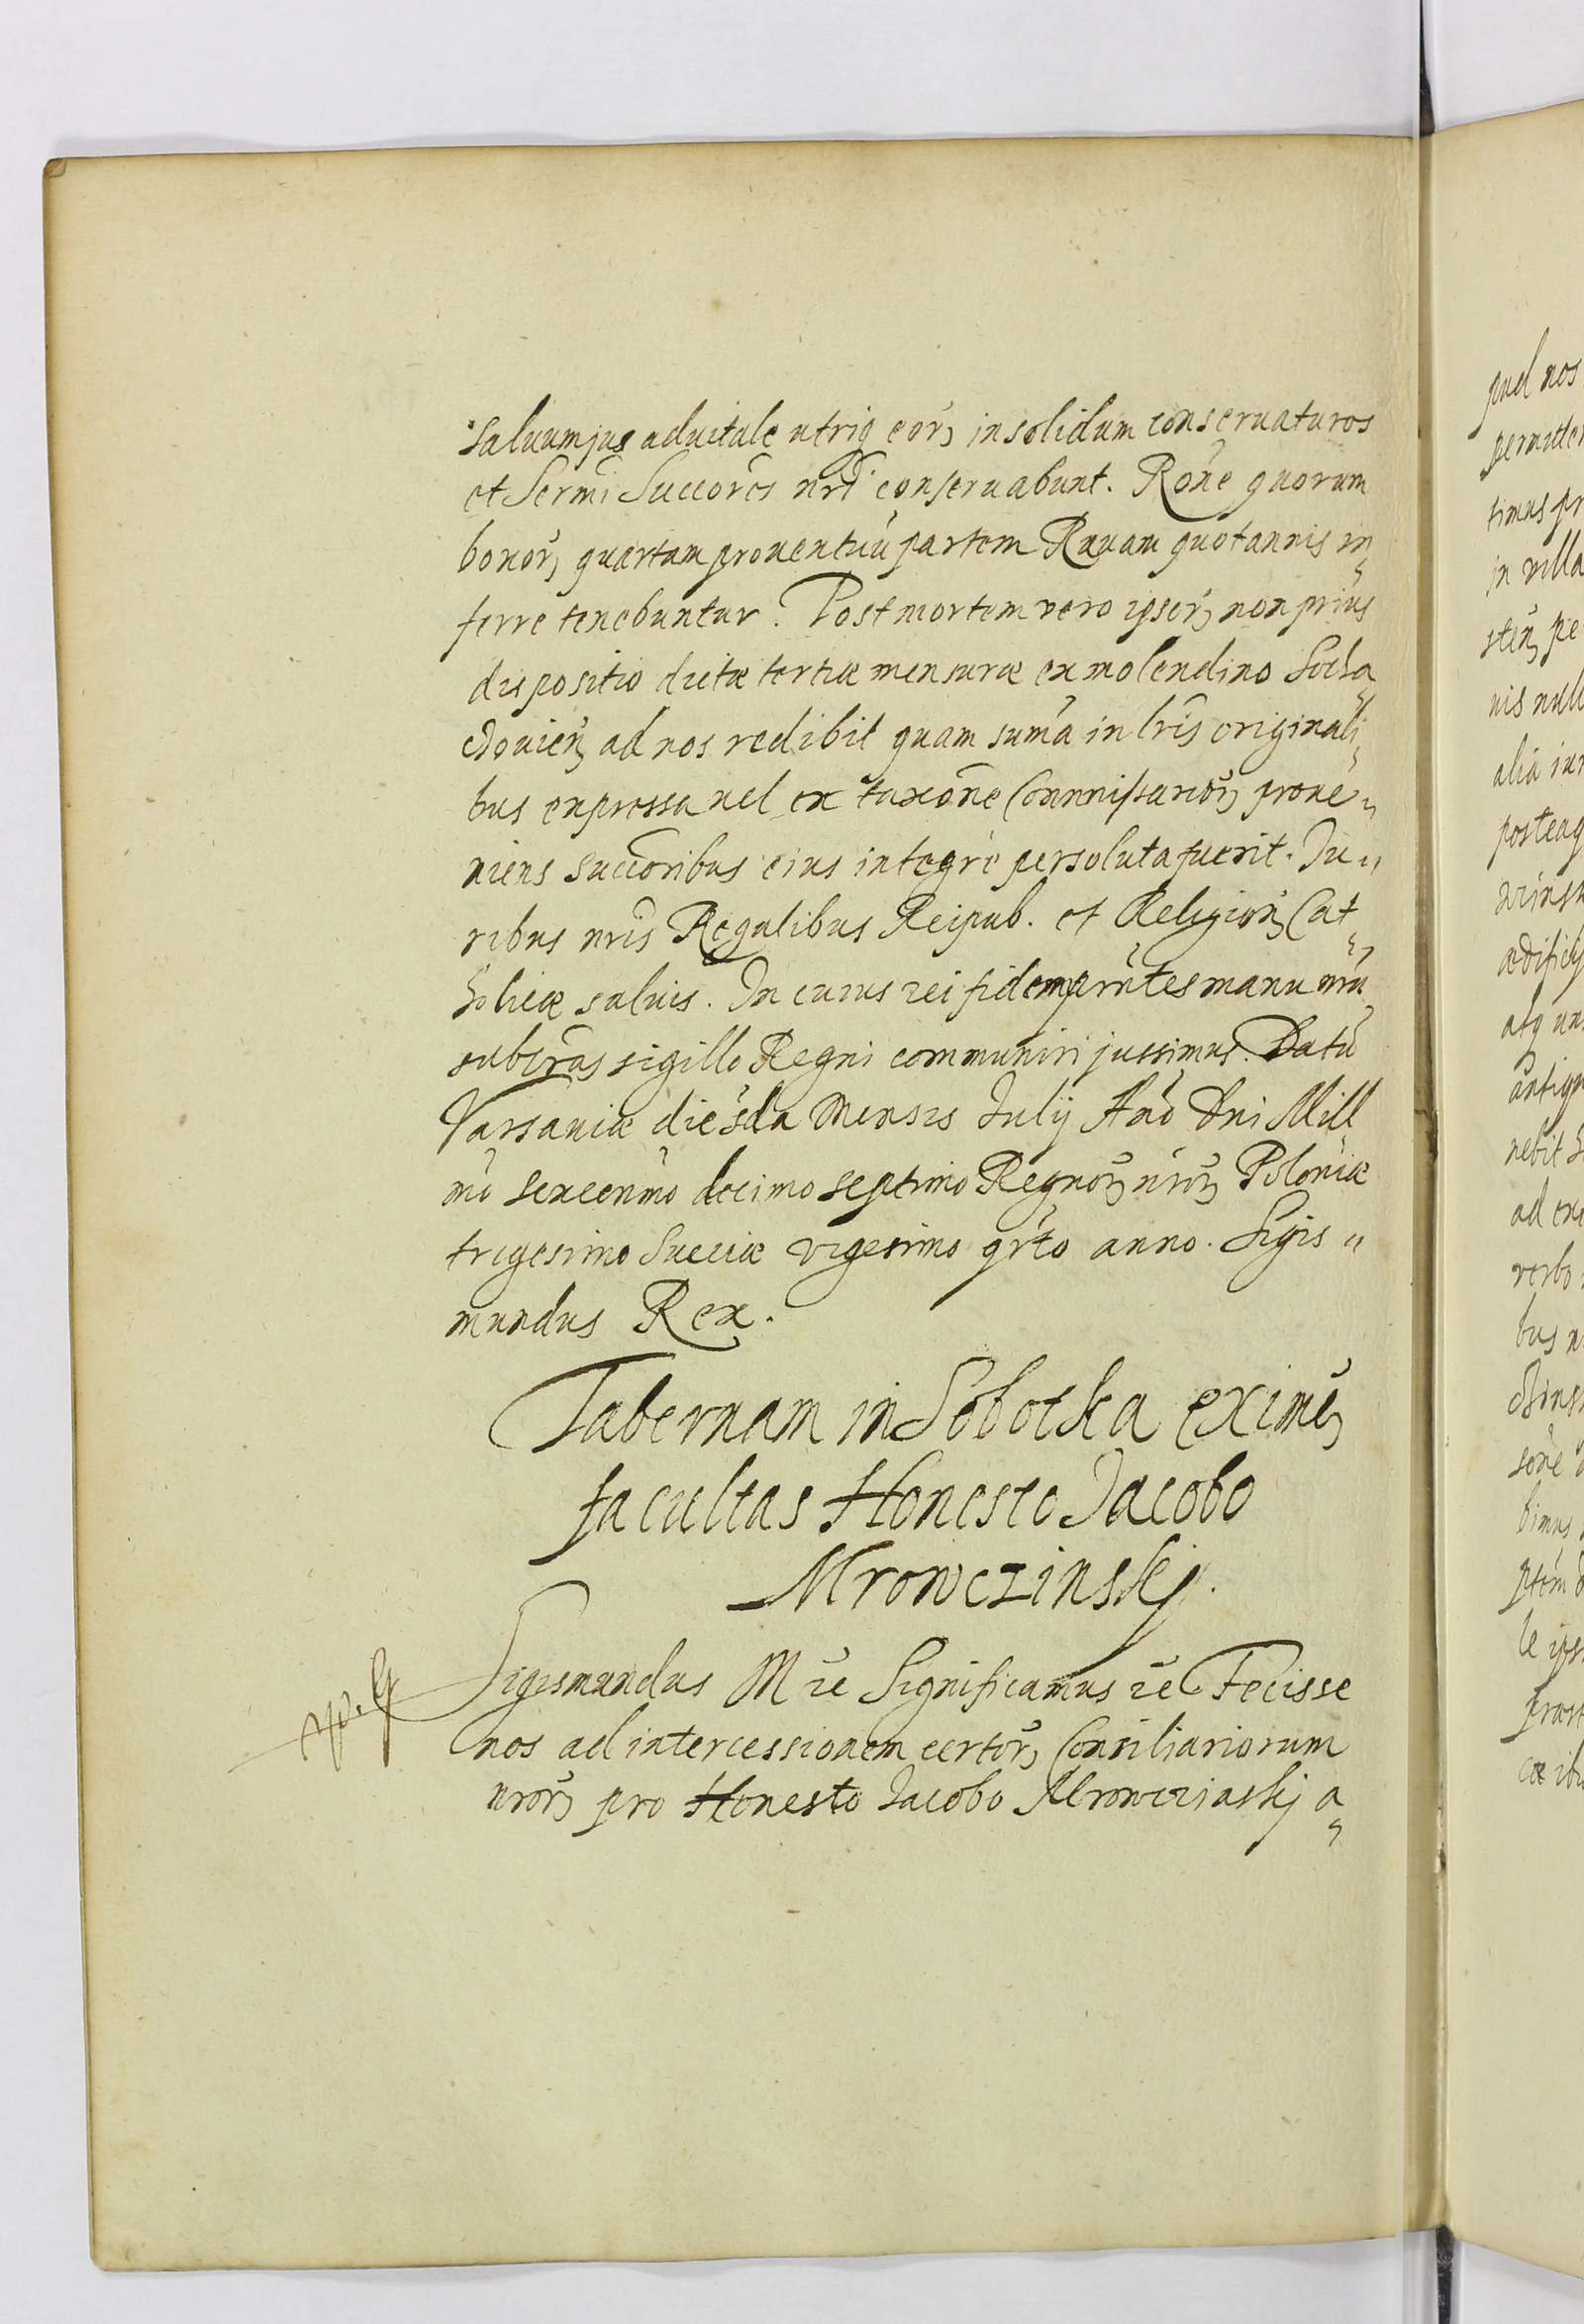 saluum jus aduitale utriq eor, in solidum conseruaturos
et Sermi Succores nri conseruabunt. Rone quorum
bonor, quartam prouentuu partem Rauam quotannis in
ferre tenebuntur. Post mortem vero ipsor, non prius
dispositio dictæ tertiæ mensuræ ex molendino Socha
czouien, ad nos redibit quam suma in lris originali
bus expressa uel ex taxone Commissarior, proue
niens succoribus eius integre persoluta fuerit. Ju
ribus nris Regalibus Reipub. et Religion, Cat
holicæ saluis. In cuius rei fidem prntes manu nra
subscras sigillo Regni communiri jussimus. Datu
Varsauiæ die sda Mensis Julij Ano Dni Mill
mo sexcenmo decimo septimo Regnor, nror, Poloniæ
trigesimo Sueciæ vigesimo qrto anno. Sigis
mundus Rex.
Tabernam in Sobotka eximen,
facultas Honesto Jacobo
Mrowczinskj.
Sigismundus M re Significamus re Fecisse
nos ad intercessionem certor, Consiliariorum
nror, pro Honesto Jacobo Mrowczinskj a
pud nos
in villa
nis null
alia iur
posteaq
ædificijs
atq
nebit
verbo
bus n
bimus
le ips